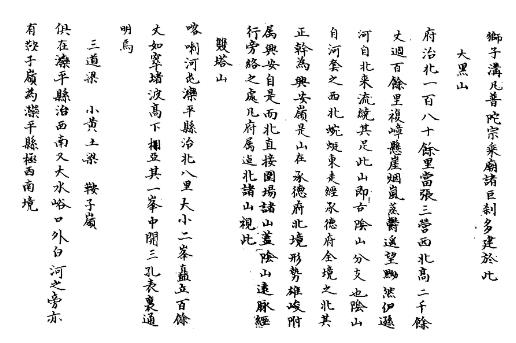 獅子溝凡普陀宗乘廟諸巨刹多建於此
大黑山
府治北一百八十餘里當張三營西北高二千餘
丈週百餘里複嶂懸崖烟嵐蒸鬱遙望黝然伊遜
河自北來流繞其足此山即古陰山分支也陰山
自河套之西北蜿蜒東走經承德府全境之北其
正幹為興安嶺是山在承德府北境形勢雄峻附
屬興安自是而北直接圍場諸山蓋陰山遠脈經
行旁絡之處凡府屬迤北諸山視此
雙塔山
喀喇河屯灤平縣治北八里大小二峯矗立百餘
丈如窣堵波高下相亞其一峯中開三孔表裏通
明焉
三道梁 小黃土梁 鞍子嶺
俱在灤平縣治西南又大水峪口外白河之旁亦
有鞍子嶺為灤平縣極西南境